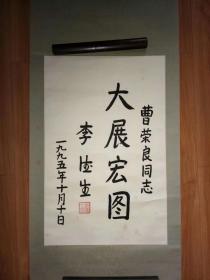 曹荣良同志
大展宏图
李德生
一九九五年十月十日